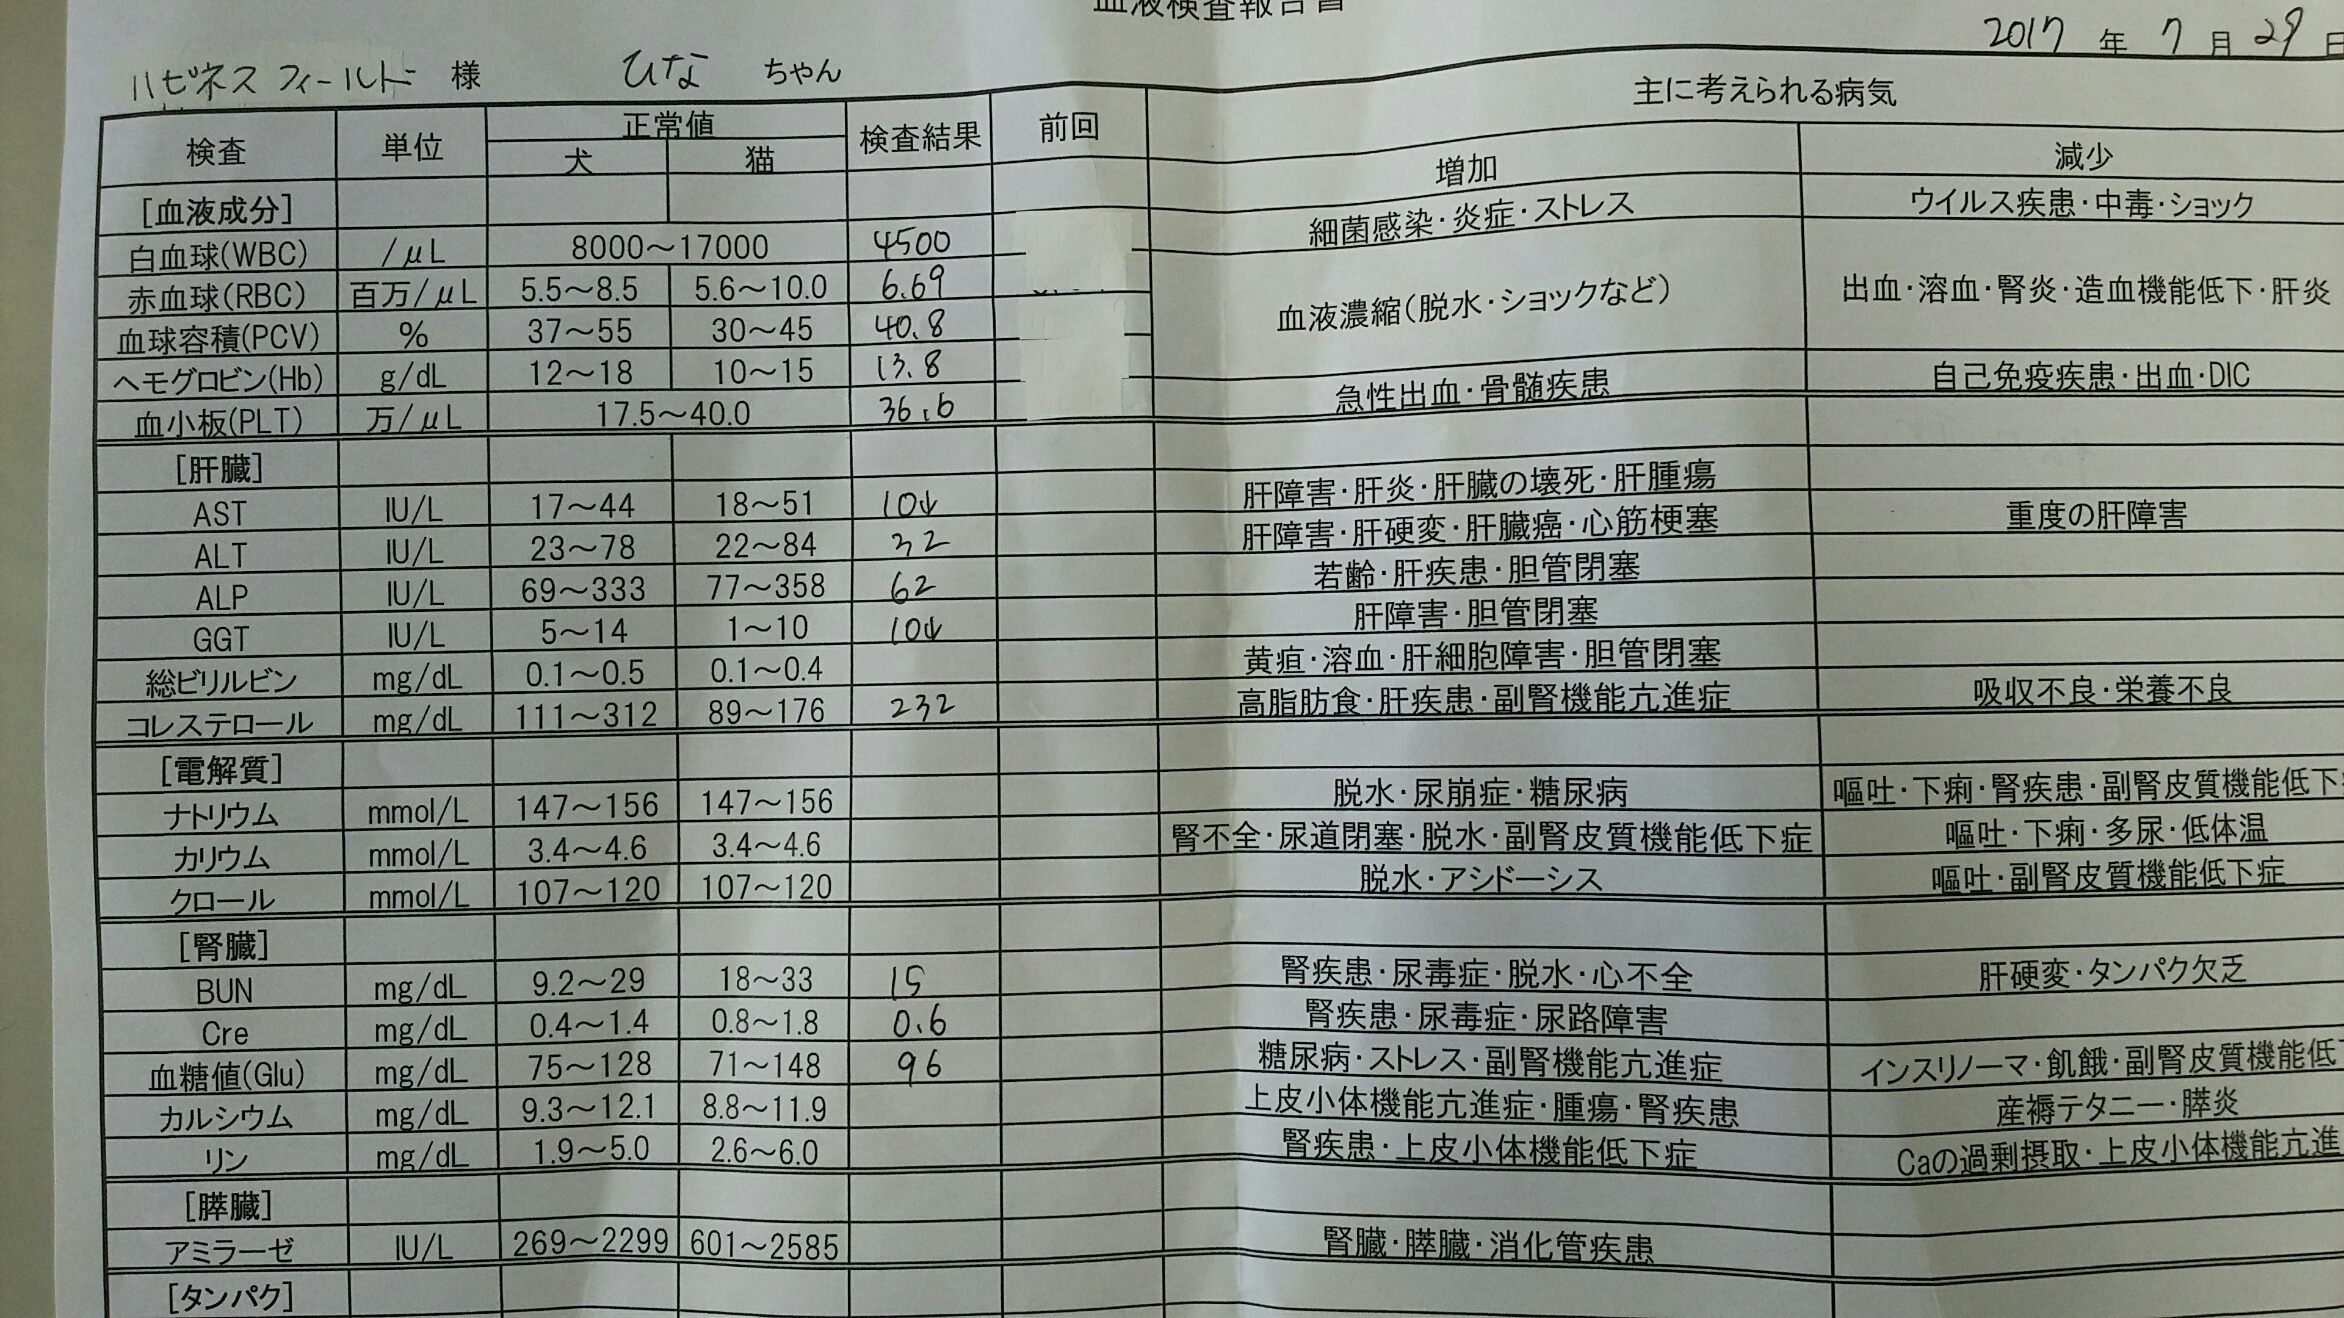 血液検査報告書
2017 年 7 月 29 日
ハピネスフィールド 様 ひな ちゃん
検査 単位 正常値 検査結果 前回 主に考えられる病気
犬 猫 増加 減少
[血液成分]
白血球(WBC) /μL 8000～17000 4500 細菌感染・炎症・ストレス ウイルス疾患・中毒・ショック
赤血球(RBC) 百万/μL 5.5～8.5 5.6～10.0 6.69
血球容積(PCV) % 37～55 30～45 40.8 血液濃縮(脱水・ショックなど) 出血・溶血・腎炎・造血機能低下・肝炎
ヘモグロビン(Hb) g/dL 12～18 10～15 13.8
血小板(PLT) 万/μL 17.5～40.0 36.6 急性出血・骨髄疾患 自己免疫疾患・出血・DIC
[肝臓]
AST IU/L 17～44 18～51 10↓ 肝障害・肝炎・肝臓の壊死・肝腫瘍
ALT IU/L 23～78 22～84 32 肝障害・肝硬変・肝臓癌・心筋梗塞 重度の肝障害
ALP IU/L 69～333 77～358 62 若齢・肝疾患・胆管閉塞
GGT IU/L 5～14 1～10 10↓ 肝障害・胆管閉塞
総ビリルビン mg/dL 0.1～0.5 0.1～0.4 黄疸・溶血・肝細胞障害・胆管閉塞
コレステロール mg/dL 111～312 89～176 232 高脂肪食・肝疾患・副腎機能亢進症 吸収不良・栄養不良
[電解質]
ナトリウム mmol/L 147～156 147～156 脱水・尿崩症・糖尿病 嘔吐・下痢・腎疾患・副腎皮質機能低下
カリウム mmol/L 3.4～4.6 3.4～4.6 腎不全・尿道閉塞・脱水・副腎皮質機能低下症 嘔吐・下痢・多尿・低体温
クロール mmol/L 107～120 107～120 脱水・アシドーシス 嘔吐・副腎皮質機能低下症
[腎臓]
BUN mg/dL 9.2～29 18～33 15 腎疾患・尿毒症・脱水・心不全 肝硬変・タンパク欠乏
Cre mg/dL 0.4～1.4 0.8～1.8 0.6 腎疾患・尿毒症・尿路障害
血糖値(Glu) mg/dL 75～128 71～148 96 糖尿病・ストレス・副腎機能亢進症 インスリノーマ・飢餓・副腎皮質機能低下
カルシウム mg/dL 9.3～12.1 8.8～11.9 上皮小体機能亢進症・腫瘍・腎疾患 産褥テタニー・膵炎
リン mg/dL 1.9～5.0 2.6～6.0 腎疾患・上皮小体機能低下症 Caの過剰摂取・上皮小体機能亢進
[膵臓]
アミラーゼ IU/L 269～2299 601～2585 腎臓・膵臓・消化管疾患
[タンパク]